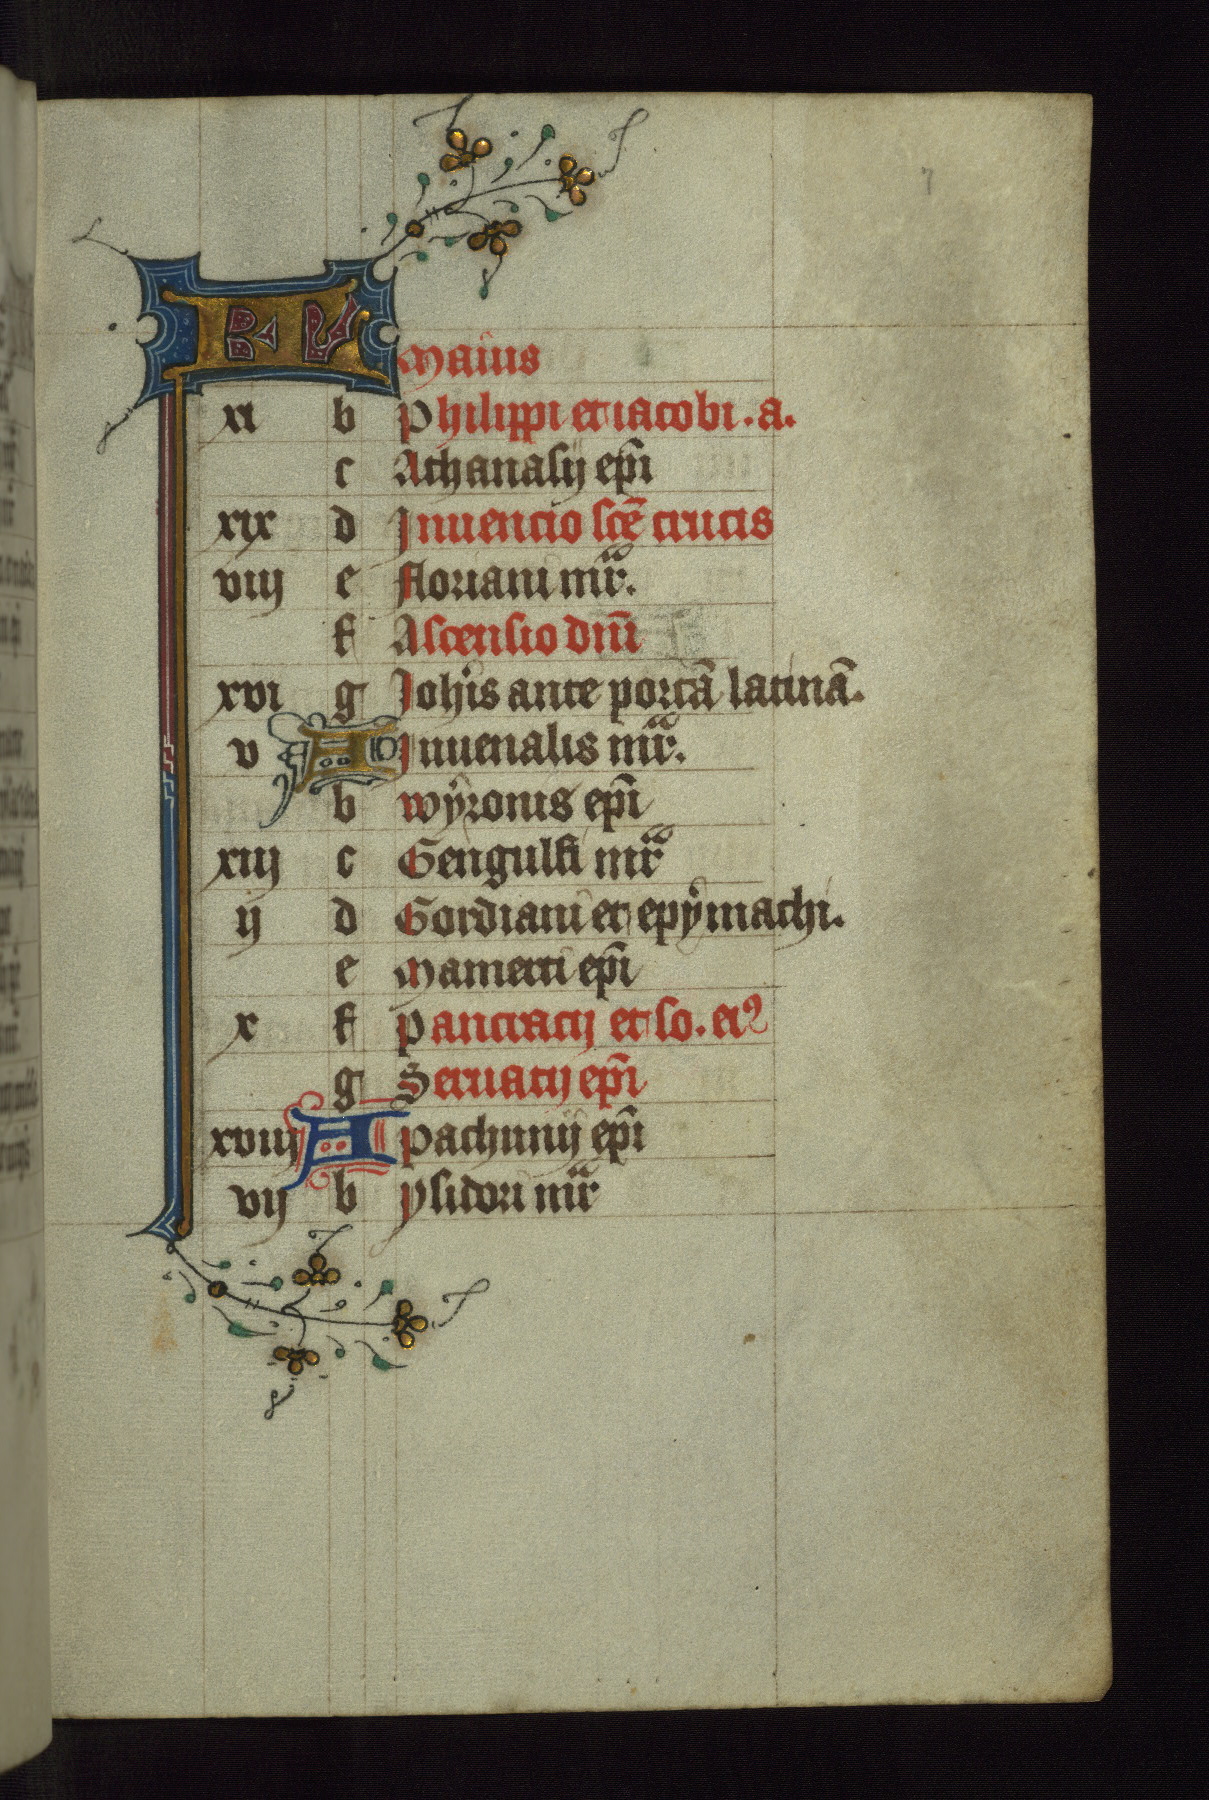 7
KL Maius
xi b Philippi et iacobi . a.
c Athanasij ep̃i
xix d Inuencio sc̃e crucis
viij e floriani mr̃.
f Ascensio dñi
xvi g Joh̃is ante portã latinã.
v A Iuuenalis mr̃.
b wyronis ep̃i
xiij c Gengulfi mr̃
ij d Gordiani et epymachi.
e Mamerti ep̃i
x f Pancracij et so. eiꝰ
g Seruacij ep̃i
xviij A Pachunij ep̃i
vij b ysidori mr̃